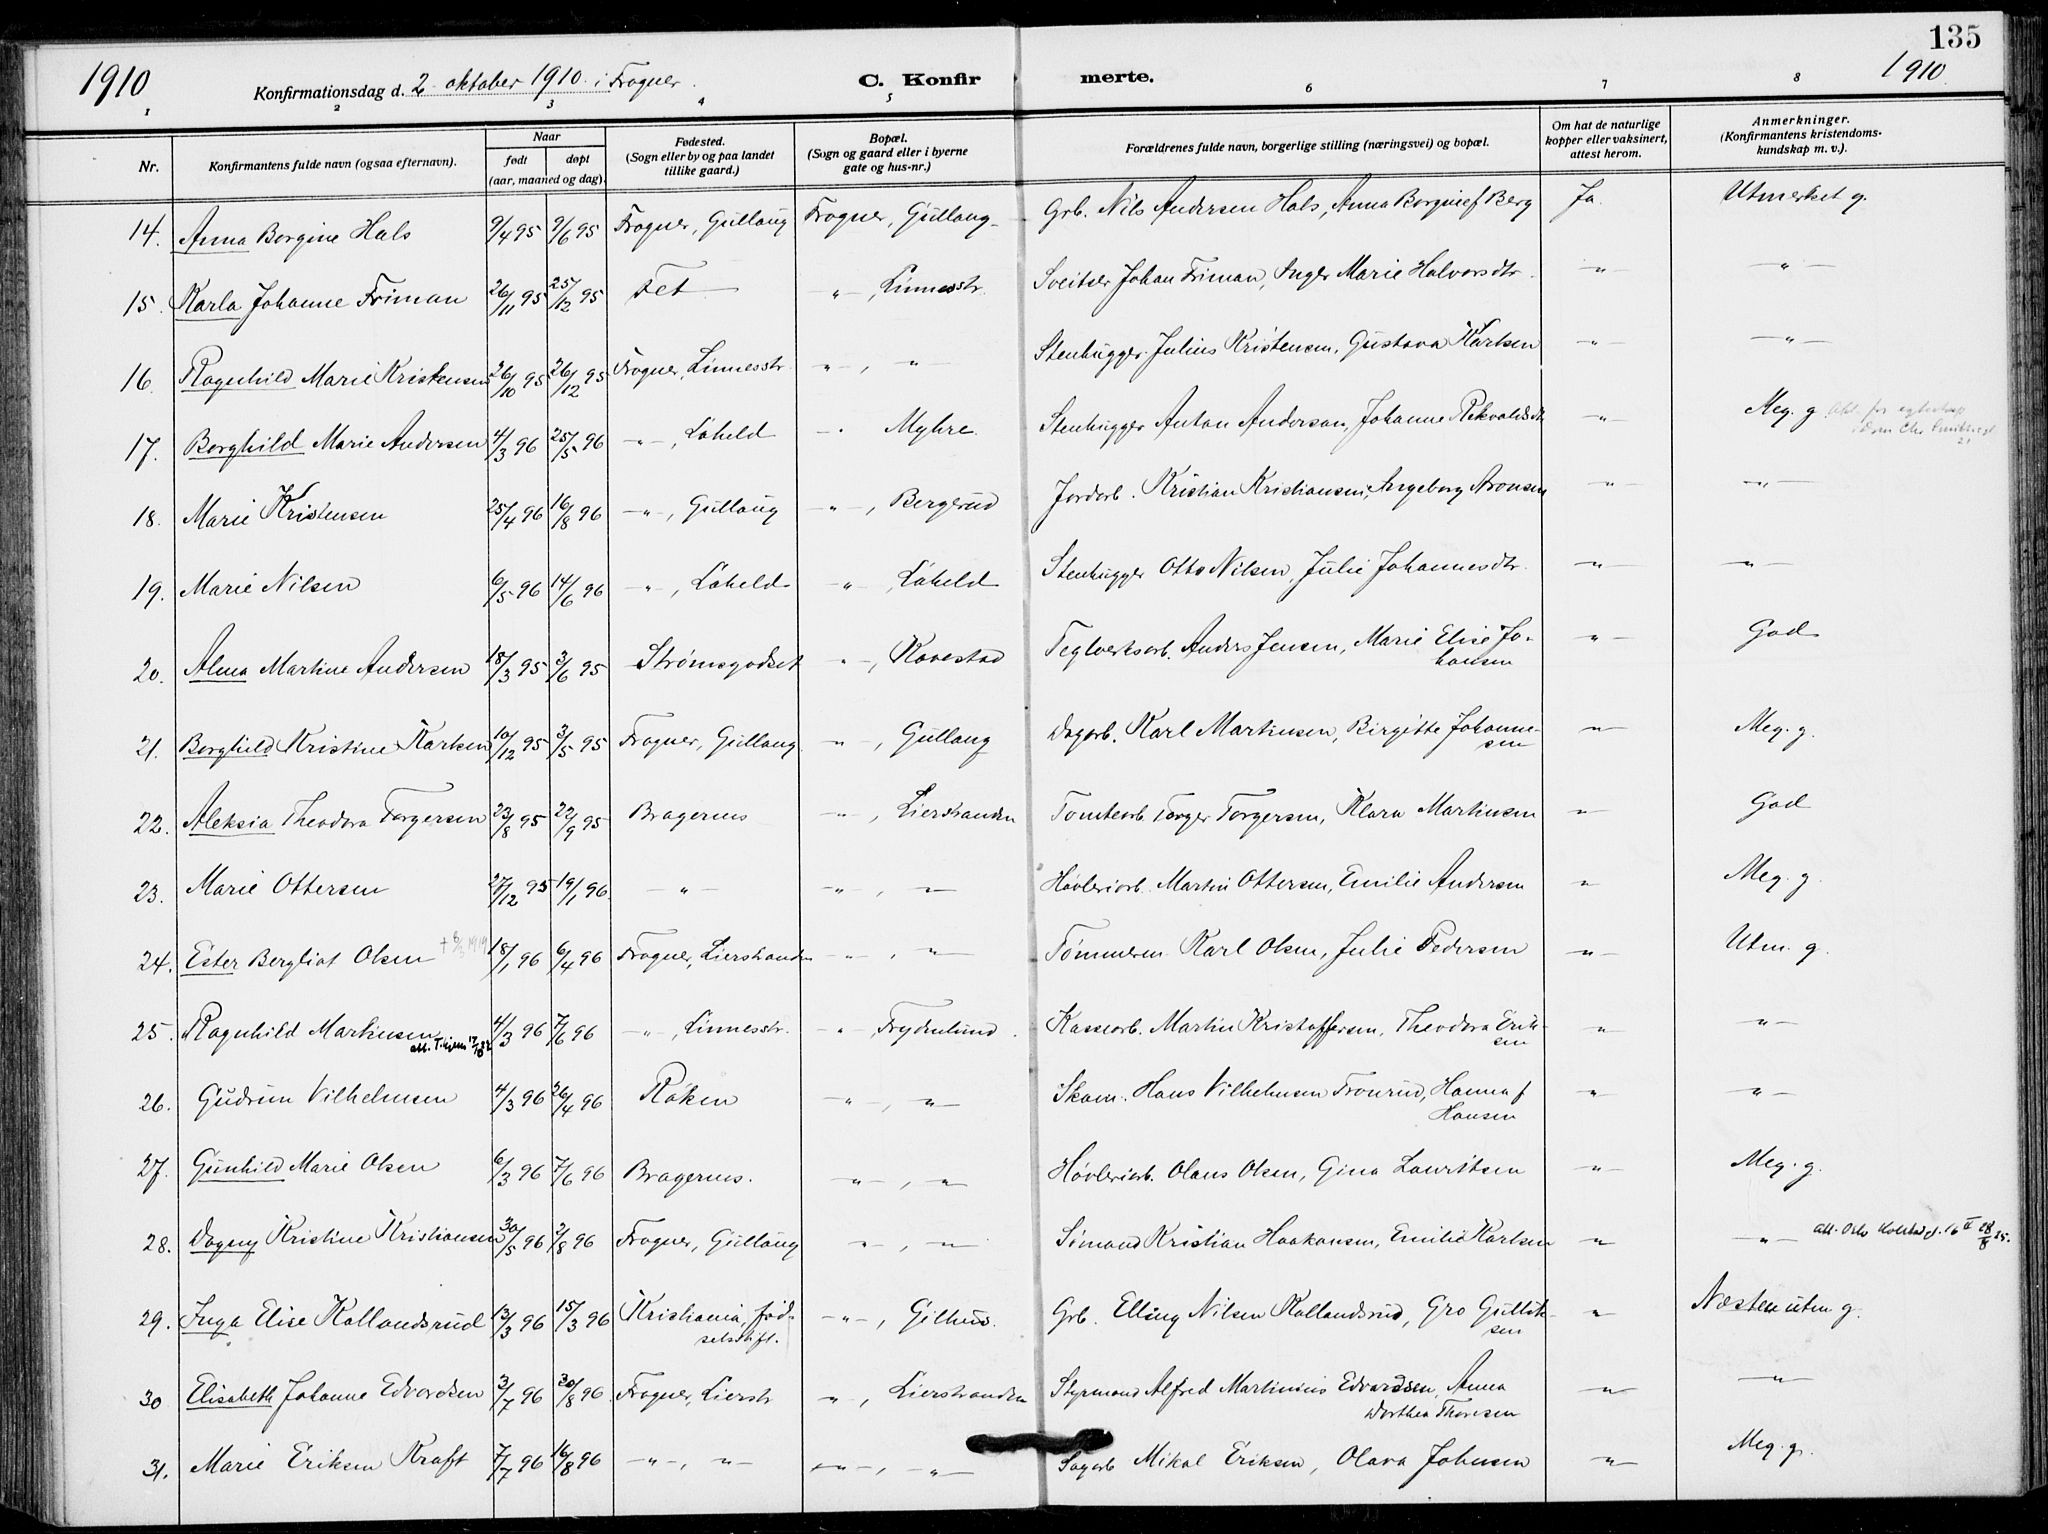 135
1910 Konfirmationsdag d. 2. oktober 1910 i Frogner. C. Konfirmerte. 1910
1 2 3 4 5 6 7 8
Nr. Konfirmantens fulde navn (ogsaa efternavn). Naar født døpt (aar, maaned og dag). Fødested. (Sogn eller by og paa landet tillike gaard.) Bopæl. (Sogn og gaard eller i byerne gate og hus-nr.) Forældrenes fulde navn, borgerlige stilling (næringsvei) og bopæl. Om hat de naturlige kopper eller vaksinert, attest herom. Anmerkninger. (Konfirmantens kristendomskundskap m. v.).
14. Anna Borgine Hals 9/4 95 9/6 95 Frogner, Gullaug Frogner, Gullaug Grb. Nils Andersen Hals, Anna Borgine f Berg Ja. Utmerket g.
15. Karla Johanne Friman 26/11 95 25/12 95 Fet -"-, Linnesstr. Sveitser Johan Friman, Inger Marie Halvorsdtr. -"- -"-
16. Ragnhild Marie Kristensen 26/10 95 26/12 95 Frogner, Linnesstr. -"-, " Stenhugger Julius Kristensen, Gustava Karlsen -"- -"-
17. Borghild Marie Andersen 4/3 96 25/5 96 -"-, Løheld -"- Myhre Stenhugger Anton Andersen, Johanne Rekvaldsdtr -"- Meg. g.
18. Marie Kristensen 25/4 96 16/8 96 -"-, Gullaug -"-, Bergerud Jordarb. Kristian Kristiansen, Ingeborg Aronsen -"- -"-
19. Marie Nilsen 6/5 96 14/6 96 -"-, Løheld -"-, Løheld Stenhugger Otto Nilsen, Julie Johannesdtr. -"- -"-
20. Alma Martine Andersen 18/3 95 3/6 95 Strømsgodset -"-, Kovestad Teglverksarb. Anders Jensen, Marie Elise Johansen -"- God
21. Borghild Kristine Karlsen 10/12 95 3/5 95 Frogner, Gullaug -"-, Gullaug Dagarb. Karl Martinsen, Birgitte Johannesen -"- Meg. g.
22. Aleksia Theodora Torgersen 23/8 95 22/9 95 Bragernes -"-, Lierstranden Tomtearb. Torger Torgersen, Klara Martinsen -"- God
23. Marie Ottersen 27/12 95 19/1 96 -"- -"-, -"- Høvleriarb. Martin Ottersen, Emilie Andersen -"- Meg. g.
24. Ester Bergliot Olsen 18/1 96 6/4 96 Frogner, Lierstranden -"-, -"- Tømmerm. Karl Olsen, Julie Pedersen -"- Utm. g.
25. Ragnhild Martinsen 4/3 96 7/6 96 -"-, Linnesstr. -"- Frydenlund Kassearb. Martin Kristoffersen, Theodora Eriksen -"- -"-
26. Gudrun Vilhelmsen 4/3 96 26/4 96 Røken -"-, -"- Skom. Hans Vilhelmsen Tronrud, Hanna f Hansen -"- -"-
27. Gunhild Marie Olsen 6/3 96 7/6 96 Bragernes. -"-, -"- Høvleriarb. Olaus Olsen, Gina Lauritsen -"- Meg. g.
28. Dagny Kristine Kristiansen 30/5 96 2/8 96 Frogner, Gullaug -"-, -"- Sømand Kristian Haakonsen, Emilie Karlsen -"- -"-
29. Inga Elise Kollandsrud 13/3 96 15/3 96 Kristiania, fødselsstift. -"-, Gilhus. Grb. Elling Nilsen Kollandsrud, Gro Gulliksen -"- Næsten utm g.
30 Elisabeth Johanne Edvardsen 3/7 96 30/8 96 Frogner, Lierstr -"-, Lierstranden Styrmand Alfred Martinius Edvardsen, Anna Dorthea Thoresen -"- -"-
31. Marie Eriksen Kraft 7/7 96 16/8 96 -"-, -"- -"-, -"- Sagarb Mikal Eriksen, Olava Johnsen -"- Meg. g.